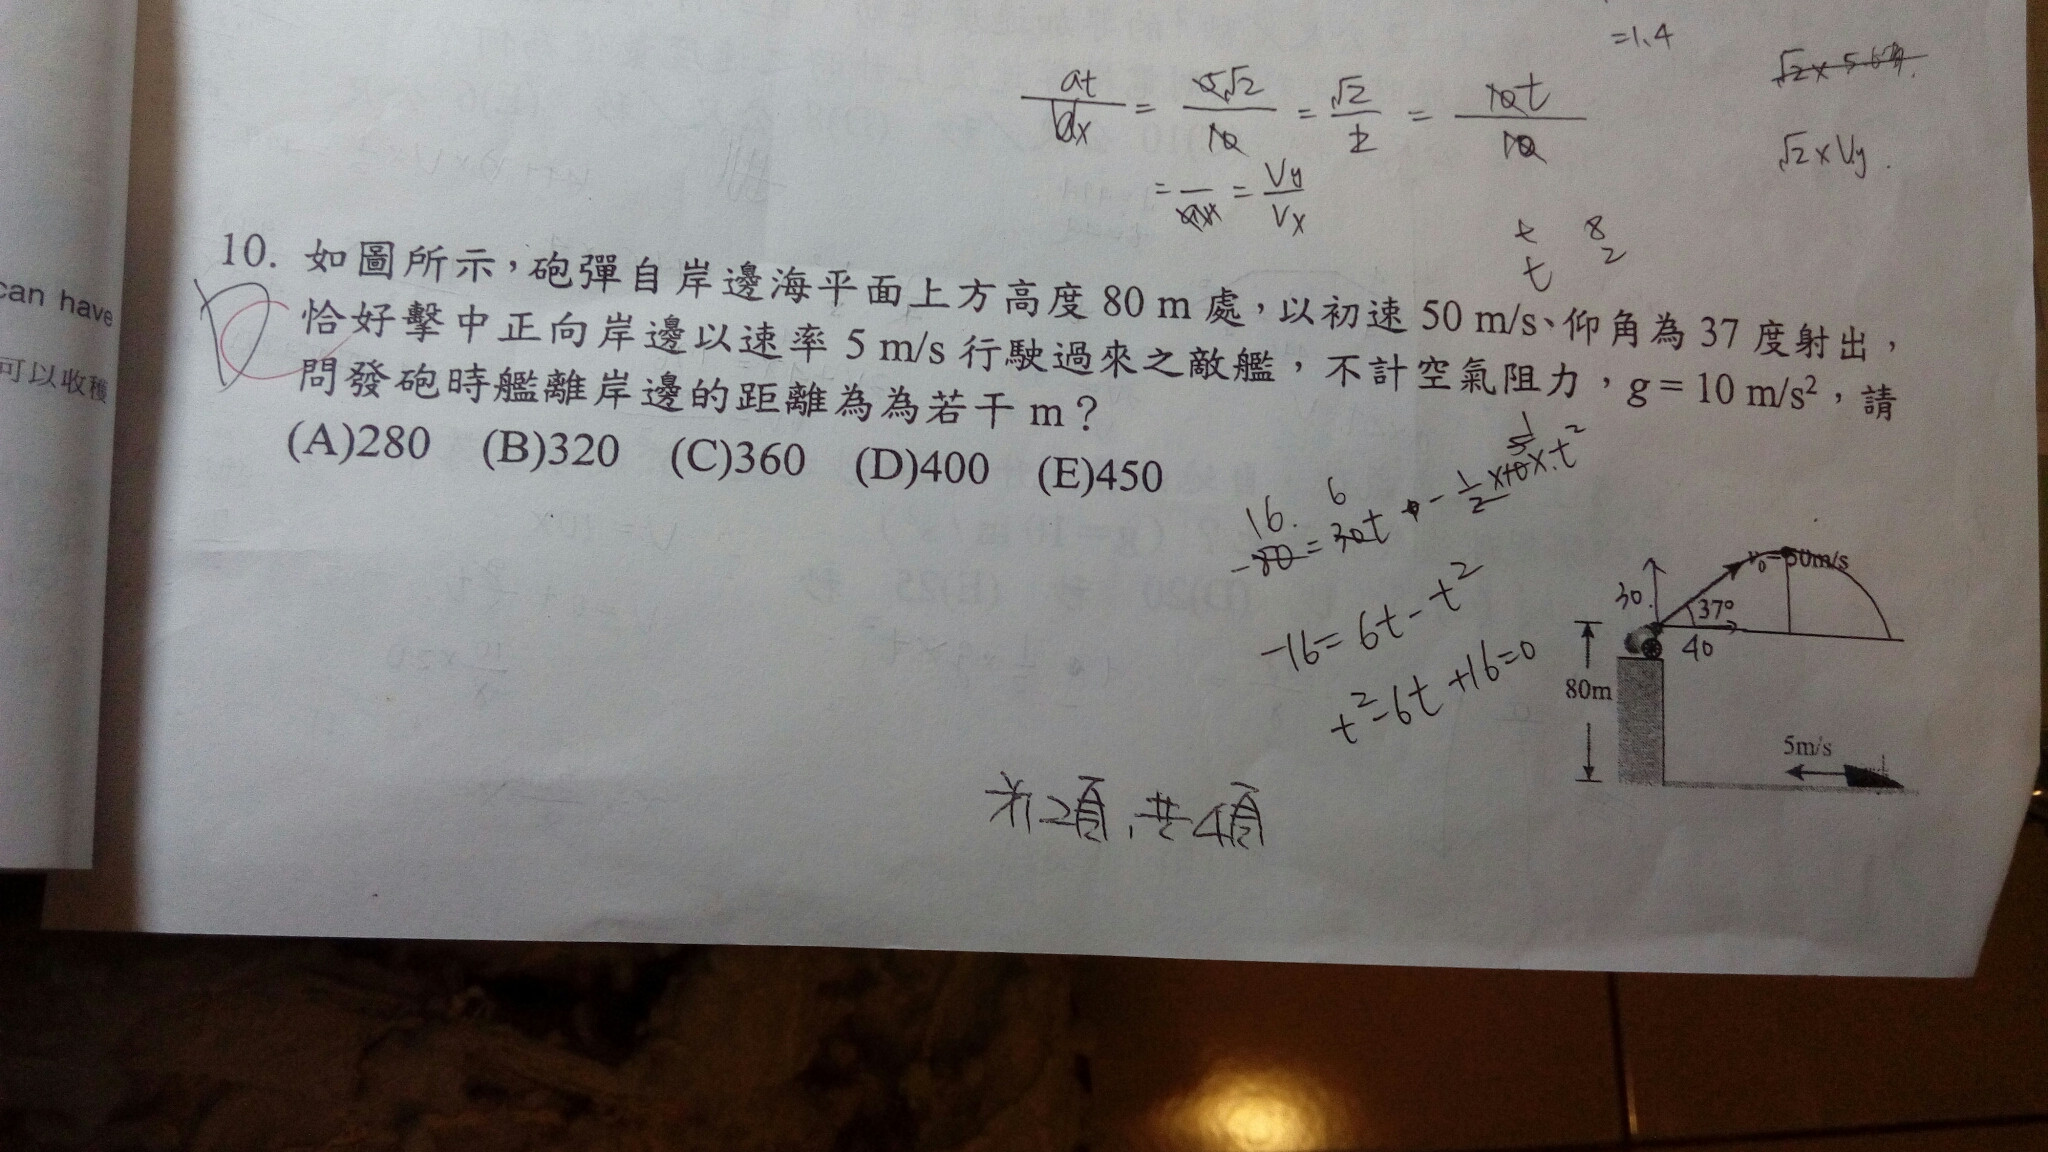 =1.4
at/dx = 5√2/10 = √2/2 = 10t/10
√2×Vy.
= Vy/Vx
t 8
t 2
can have
可以收穫
D
10. 如圖所示，砲彈自岸邊海平面上方高度 80 m 處，以初速 50 m/s、仰角為 37 度射出，
恰好擊中正向岸邊以速率 5 m/s 行駛過來之敵艦，不計空氣阻力，g = 10 m/s²，請
問發砲時艦離岸邊的距離為為若干 m？
(A)280 (B)320 (C)360 (D)400 (E)450
16. 6
-80 = 30t - 1/2×10×t²
-16=6t-t²
t²-6t+16=0
v₀=50m/s
30.
37°
40
80m
5m/s
2項,共4項